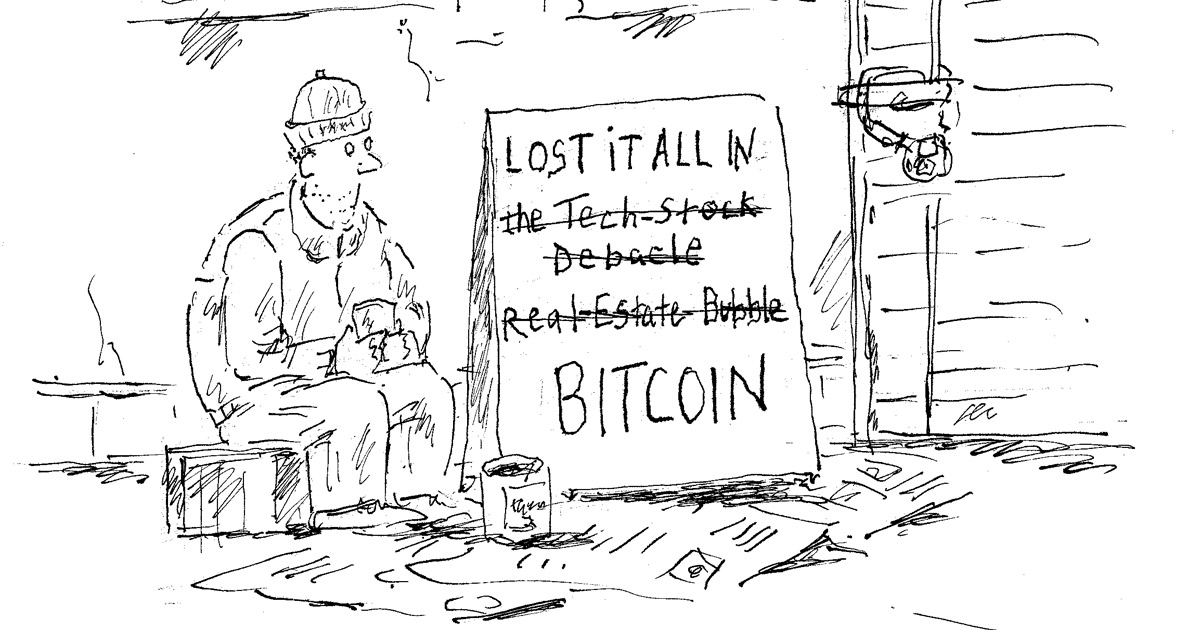 LOST iT ALL IN
the Tech-Stock
Debacle
Real-Estate Bubble
BITCOIN